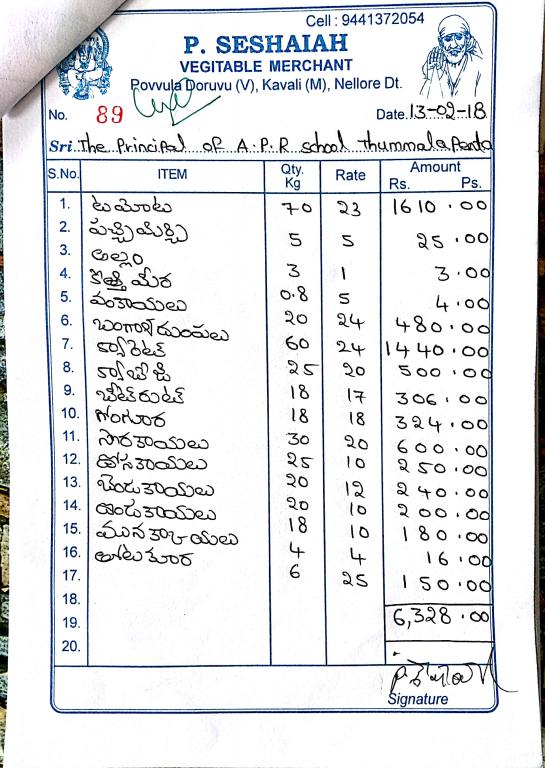 Cell : 9441372054
P. SESHAIAH
VEGITABLE MERCHANT
Povvula Doruvu (V), Kavali (M), Nellore Dt.
No. 89 Date. 13-02-18
Sri. The Principal of A.P.R school Thummalapenta
S.No. ITEM Qty. Kg Rate Amount Rs. Ps.
1. టమోటు 70 23 1610.00
2. పచ్చిమిర్చి 5 5 25.00
3. అల్లం 3 1 3.00
4. కొత్తిమీర 0.8 5 4.00
5. వంకాయలు 20 24 480.00
6. బంగాళదుంపలు 60 24 1440.00
7. క్యారెట్ 25 20 500.00
8. క్యాబేజి 18 17 306.00
9. బీట్‌రూట్ 18 18 324.00
10. గోంగూర 30 20 600.00
11. సొరకాయలు 25 10 250.00
12. దోసకాయలు 20 12 240.00
13. బెండకాయలు 20 10 200.00
14. 18 10 180.00
15. మునకాయలు 4 4 16.00
16. తోటకూర 6 25 150.00
17.
18.
19. 6,328.00
20.
Signature